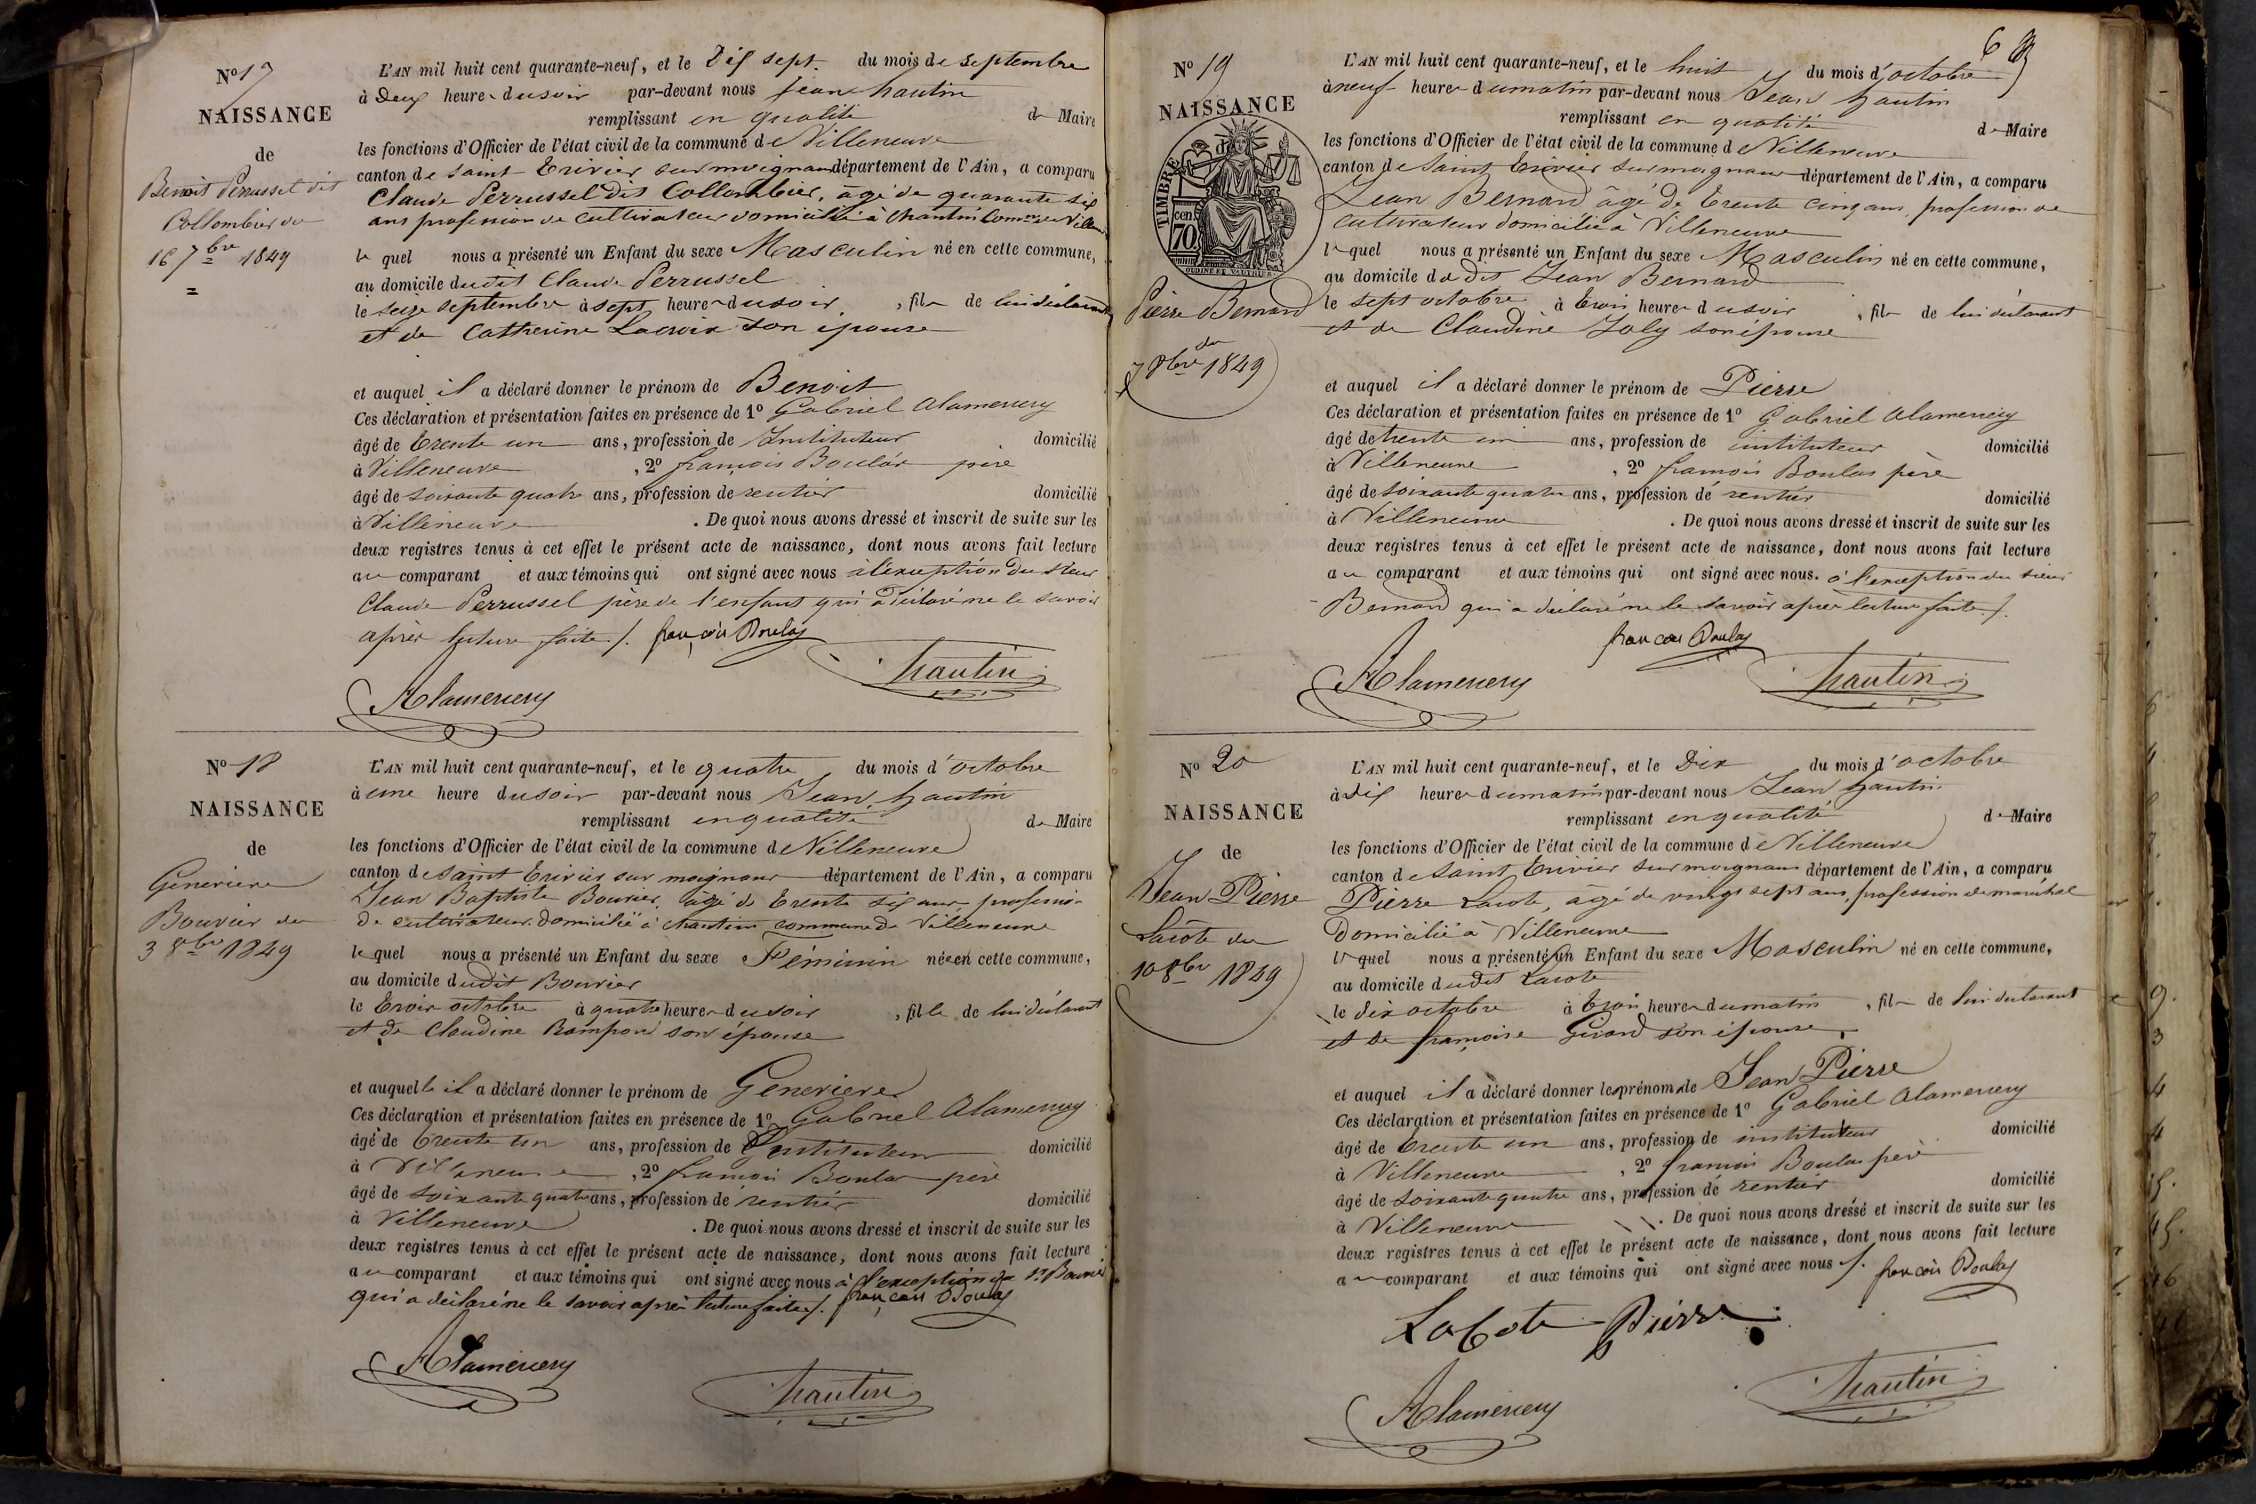 Nº 17
NAISSANCE
de
Benoit Perrussel dit
Collombier du
16 7bre 1849
L'AN mil huit cent quarante-neuf, et le Dix sept du mois de septembre
à Deux heures du soir par-devant nous Jean hautin
remplissant en qualité de Maire
les fonctions d'Officier de l'état civil de la commune de Villeneuve
canton de saint Trivier sur moignans département de l'Ain, a comparu
Claude Perrussel dit Collombier, âgé de quarante six
ans profession de cultivateur domicilié à chantins Comme de Ville
le quel nous a présenté un Enfant du sexe Masculin né en cette commune,
au domicile dudit Claude Perrussel
le seize septembre à sept heures du soir, fils de lui déclarant
et de Catherine Lacroix son épouse
et auquel il a déclaré donner le prénom de Benoit
Ces déclaration et présentation faites en présence de 1º Gabriel Alamercery
âgé de trente un ans, profession de Instituteur domicilié
à Villeneuve, 2º françois Boulas père
âgé de soixante quatre ans, profession de rentier domicilié
à Villeneuve. De quoi nous avons dressé et inscrit de suite sur les
deux registres tenus à cet effet le présent acte de naissance, dont nous avons fait lecture
au comparant et aux témoins qui ont signé avec nous à l'exception du sieur
Claude Perrussel père de l'enfant qui a déclaré ne le savoir
après lecture faite /. françois Boulas
hautin
Alamercery
Nº 18
NAISSANCE
de
Genevieve
Bouvier du
3 8bre 1849
L'AN mil huit cent quarante-neuf, et le quatre du mois d'octobre
à une heure du soir par-devant nous Jean hautin
remplissant en qualité de Maire
les fonctions d'Officier de l'état civil de la commune de Villeneuve
canton de saint Trivier sur moignans département de l'Ain, a comparu
Jean Baptiste Bouvier, âgé de trente six ans profession
de cultivateur domicilié à chantins commune de Villeneuve
le quel nous a présenté un Enfant du sexe Féminin née en cette commune,
au domicile dudit Bouvier
le trois octobre à quatre heures du soir, fille de lui déclarant
et de Claudine Rampon son épouse
et auquelle il a déclaré donner le prénom de Genevieve
Ces déclaration et présentation faites en présence de 1º Gabriel Alamercery
âgé de trente un ans, profession de Instituteur domicilié
à Villeneuve, 2º françois Boulas père
âgé de soixante quatre ans, profession de rentier domicilié
à Villeneuve. De quoi nous avons dressé et inscrit de suite sur les
deux registres tenus à cet effet le présent acte de naissance, dont nous avons fait lecture
au comparant et aux témoins qui ont signé avec nous à l'exception du sr Bouvier
qui a déclaré ne le savoir après lecture faite /. françois Boulas
Alamercery
hautin
6
Nº 19
NAISSANCE
de
TIMBRE
70 cen
Pierre Bernard
du
7 8bre 1849
L'AN mil huit cent quarante-neuf, et le huit du mois d'octobre
à neuf heures du matin par-devant nous Jean hautin
remplissant en qualité de Maire
les fonctions d'Officier de l'état civil de la commune de Villeneuve
canton de saint Trivier sur moignans département de l'Ain, a comparu
Jean Bernard âgé de trente cinq ans, profession de
cultivateur domicilié à Villeneuve
le quel nous a présenté un Enfant du sexe Masculin né en cette commune,
au domicile du dit Jean Bernard
le sept octobre à trois heures du soir, fils de lui déclarant
et de Claudine Joly son épouse
et auquel il a déclaré donner le prénom de Pierre
Ces déclaration et présentation faites en présence de 1º Gabriel Alamercery
âgé de trente un ans, profession de instituteur domicilié
à Villeneuve, 2º françois Boulas père
âgé de soixante quatre ans, profession de rentier domicilié
à Villeneuve. De quoi nous avons dressé et inscrit de suite sur les
deux registres tenus à cet effet le présent acte de naissance, dont nous avons fait lecture
au comparant et aux témoins qui ont signé avec nous. à l'exception du sieur
Bernard qui a déclaré ne le savoir après lecture faite /.
françois Boulas
Alamercery
hautin
Nº 20
NAISSANCE
de
Jean Pierre
Lacote du
10 8bre 1849
L'AN mil huit cent quarante-neuf, et le Dix du mois d'octobre
à dix heures du matin par-devant nous Jean hautin
remplissant en qualité de Maire
les fonctions d'Officier de l'état civil de la commune de Villeneuve
canton de saint Trivier sur moignans département de l'Ain, a comparu
Pierre Lacote, âgé de vingt sept ans, profession de maréchal
domicilié à Villeneuve
le quel nous a présenté un Enfant du sexe Masculin né en cette commune,
au domicile dudit Lacote
le dix octobre à trois heures du matin, fils de lui déclarant
et de françoise Girard son épouse
et auquel il a déclaré donner le prénom de Jean Pierre
Ces déclaration et présentation faites en présence de 1º Gabriel Alamercery
âgé de trente un ans, profession de instituteur domicilié
à Villeneuve, 2º françois Boulas père
âgé de soixante quatre ans, profession de rentier domicilié
à Villeneuve. De quoi nous avons dressé et inscrit de suite sur les
deux registres tenus à cet effet le présent acte de naissance, dont nous avons fait lecture
au comparant et aux témoins qui ont signé avec nous /. françois Boulas
Lacote Pierre
Alamercery
hautin